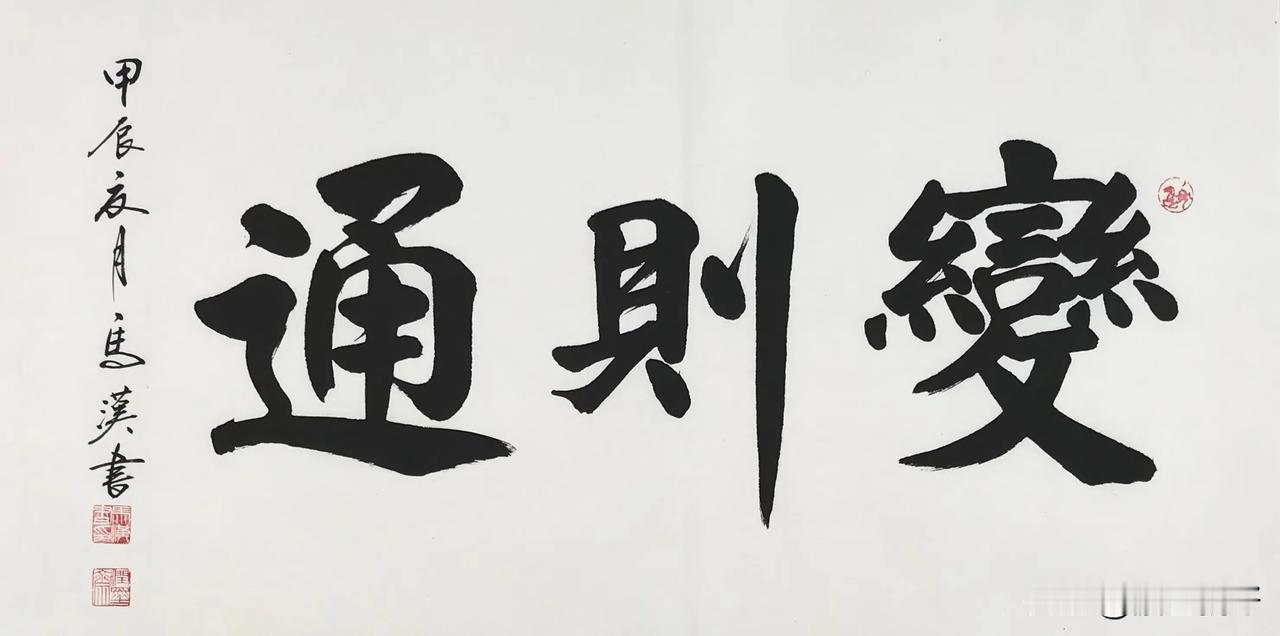 變則通
甲辰夏月馬漢書